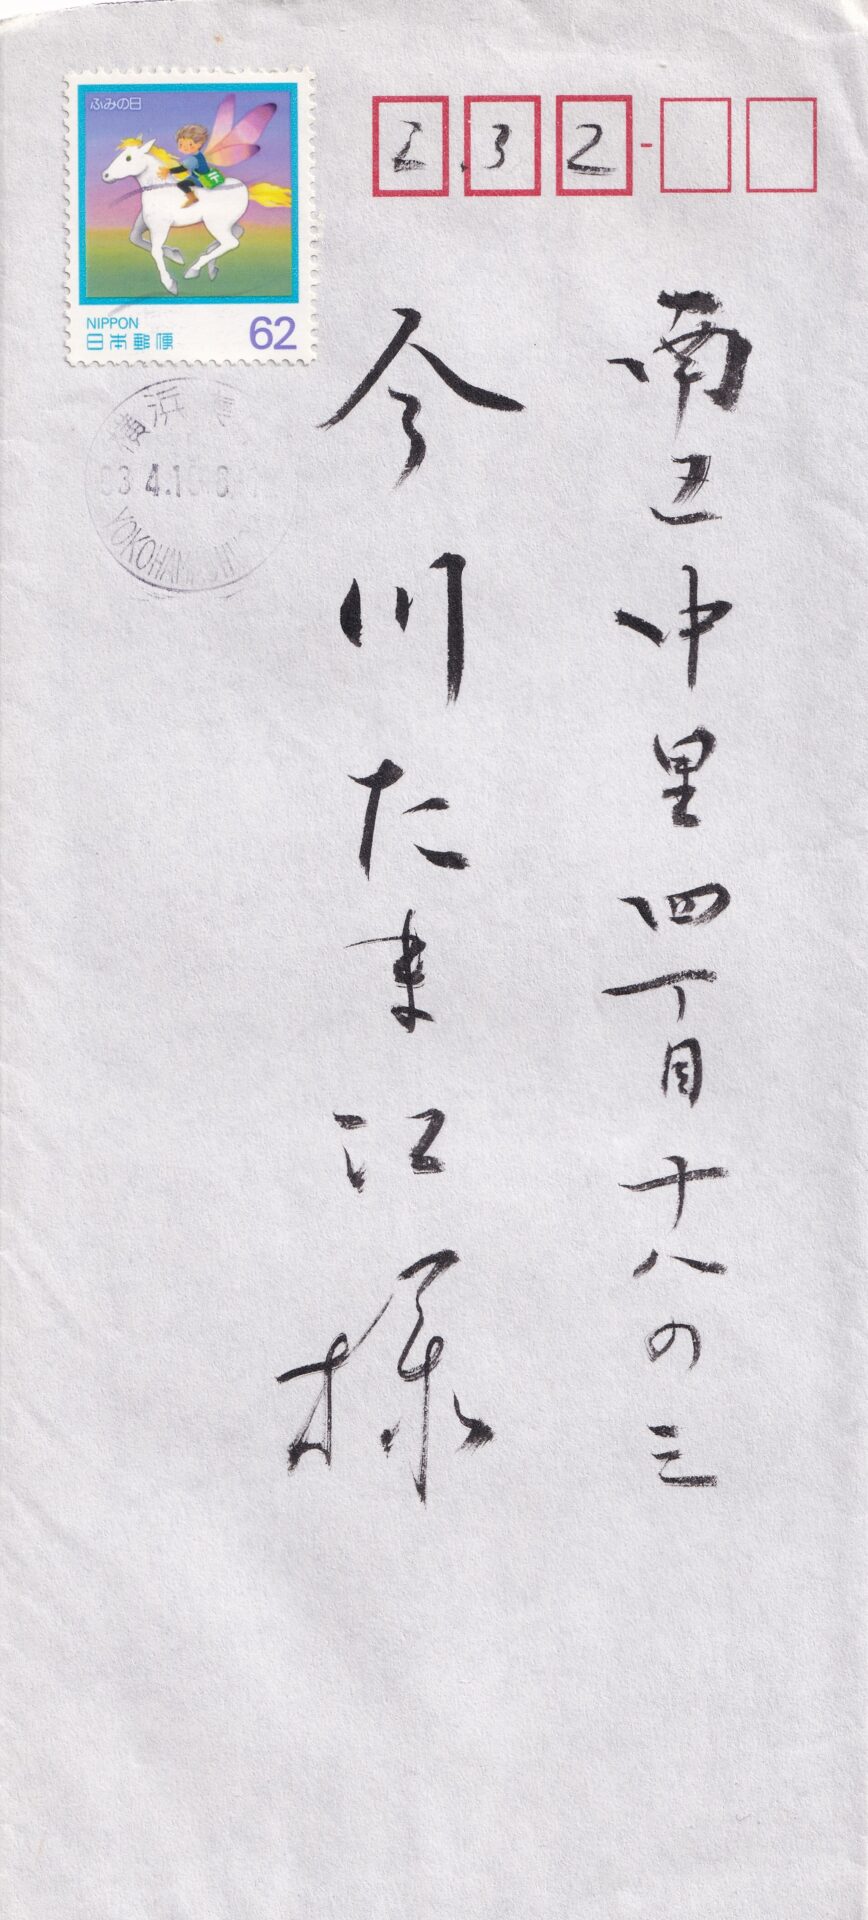 ふみの日
NIPPON
日本郵便
62
232-
南区中里四丁目十八の三
今川たま江様
横浜
4.1
YOKOHAMA